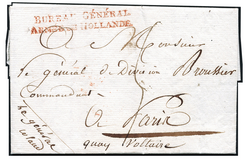 BUREAU GÉNÉRAL
ARMÉE DE HOLLANDE
A Monsieur
Le général de Division Broussier
Commandant
a Paris
quay Voltaire
Le général